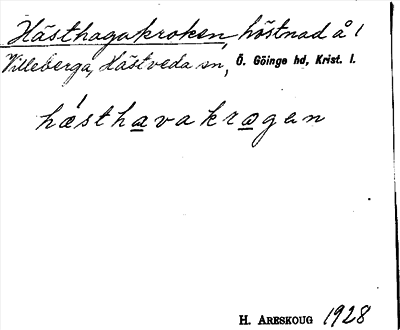 Hästhagakroken, höstnad å l
Villeberga, Hästveda sn, Ö. Göinge hd, Krist. l.
hǽsthavakrogen
H. ARESKOUG 1928